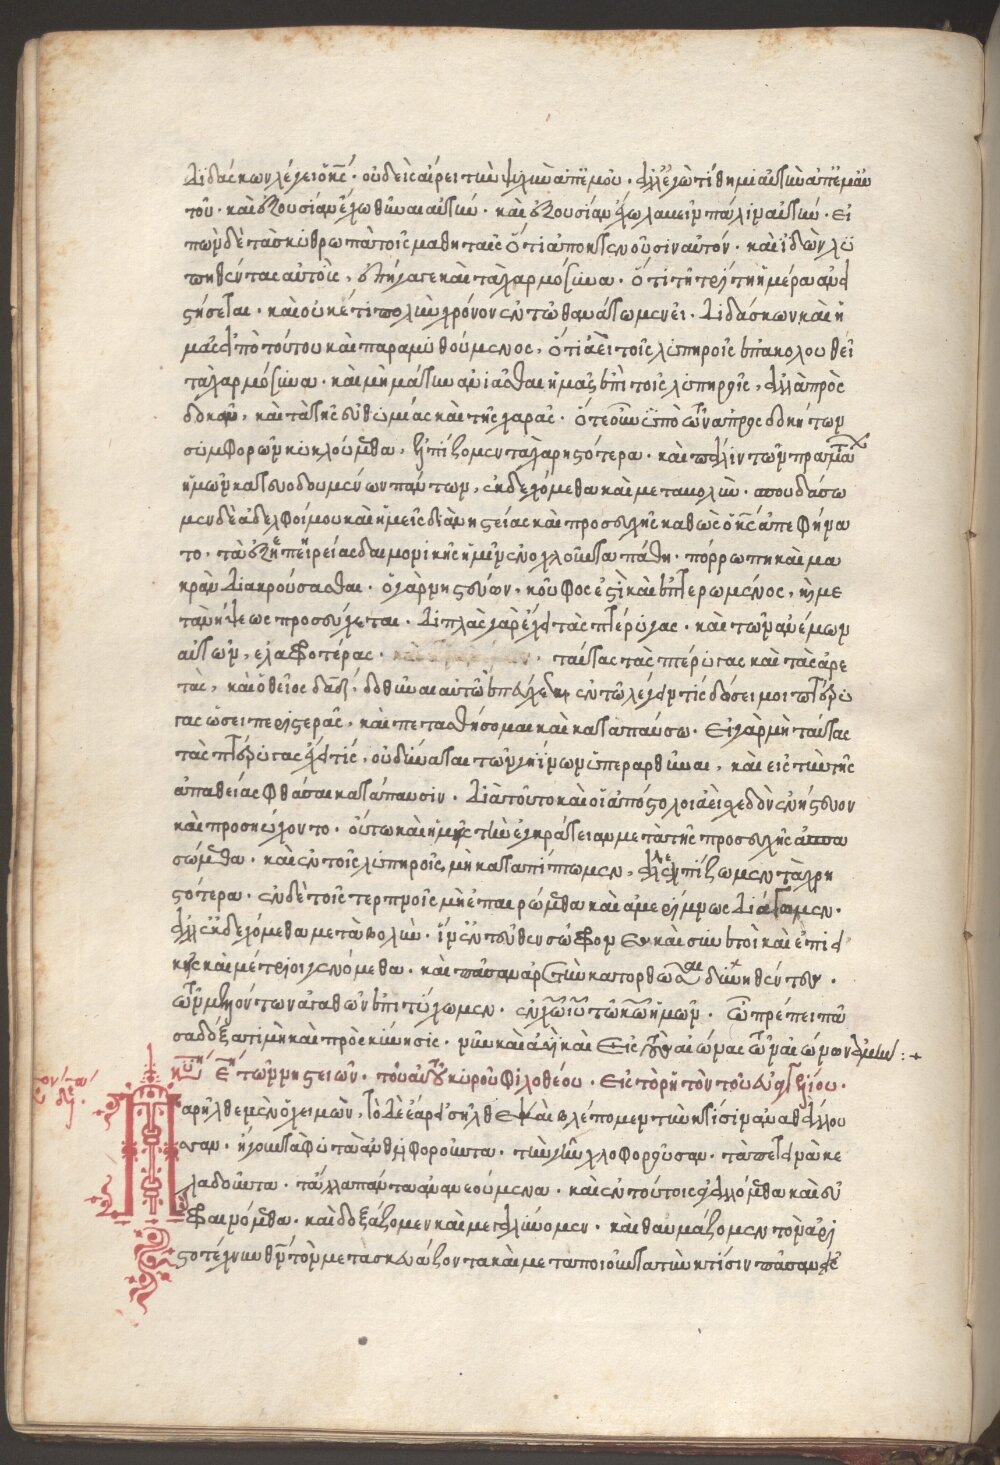 διδάσκων λέγει ὁ κς. οὐδεὶς αἴρει τὴν ψυχὴν ἀπ' ἐμοῦ. ἀλλ' ἐγὼ τίθημι αὐτὴν ἀπ' ἐμαυ
τοῦ. καὶ ἐξουσίαν ἔχω θῦναι αὐτήν. καὶ ἐξουσίαν ἔχω λαβεῖν πάλιν αὐτήν. εἰ
πὼν δὲ τὰ σκυθρωπὰ τοῖς μαθηταῖς ὅτι ἀποκτενοῦσιν αὐτόν. καὶ ἰδὼν λυ
πηθέντας αὐτοὺς, ἐπήγαγε καὶ τὰ χαρμόσυνα. ὅτι τῇ τρίτῃ ἡμέρα ἀνα
στήσεται. καὶ οὐκέτι πολὺν χρόνον ἐν τῷ θανάτω μένει. διδάσκων καὶ ἡ
μᾶς ἀπὸ τούτου καὶ παραμυθούμενος, ὅτι ἀεὶ τοῖς λυπηροῖς ἐπακολουθεῖ
τὰ χαρμόσυνα. καὶ μὴ μάτην ἀνιᾶσθαι ἡμᾶς ἐπὶ τοῖς λυπηροῖς, ἀλλὰ προσ
δοκᾶν, καὶ τὰ τῆς εὐθυμίας καὶ τῆς χαρᾶς. ὅτε οὖν ὑπὸ τῶν ἀπροσδοκήτων
συμφορῶν κυκλούμεθα, ἐλπίζομεν τὰ χρηστότερα. καὶ πάλιν τῶν πραγμάτων
ἡμῶν κατευοδουμένων πάντων, ἐκδεχόμεθα καὶ μεταβολὴν. σπουδάσω
μεν δὲ ἀδελφοί μου καὶ ἡμεῖς διὰ νηστείας καὶ προσευχῆς καθὼς ὁ κς ἀπεφήνα
το. τὰ ἐξ ἐπηρείας δαιμονικῆς ἡμῖν ἐνοχλοῦντα πάθη. πόρρωπη καὶ μα
κρὰν διακρούσασθαι. ὁ γὰρ νηστεύων, κοῦφος ἐστὶ καὶ ἐπτερωμένος, κἢ με
τὰ νήψεως προσεύχεται. διπλᾶς γὰρ ἔχει τὰς πτέρυγας. καὶ τῶν ἀνέμων
αὐτῶν, ἐλαφοτέρας. ταύτας τὰς πτέρυγας καὶ τὰς ἀρε
τὰς, καὶ ὁ θεῖος δαδ. δοθῦναι αὐτῷ ἐπεύχεται, ἐν τῷ λέγειν τίς δώσει μοι πτέρυ
γας ὡσεὶ περιστερᾶς, καὶ πετασθήσομαι καὶ καταπαύσω. εἰ γὰρ μὴ ταύτας
τὰς πτέρυγας ἔχει τίς, οὐ δύναται τῶν γηΐνων ὑπεραρθῦναι, καὶ εἰς τὴν τῆς
ἀπαθείας φθάσαι κατάπαυσιν. διὰ τοῦτο καὶ οἱ ἀπόστολοι ἀεὶ σχεδὸν ἐνήστευον
καὶ προσηύχοντο. οὕτω καὶ ἡμεῖς τὴν ἐγκράτειαν μετὰ τῆς προσευχῆς ἀσπα
σώμεθα. καὶ ἐν τοῖς λυπηροῖς, μὴ καταπίπτωμεν, ἀλλ' ἐλπίζωμεν τὰ χρη
στότερα. ἐν δὲ τοῖς τερπνοῖς μὴ ἐπαιρώμεθα καὶ ἀμερίμνως διάγωμεν.
ἀλλ' ἐκδεχόμεθα μεταβολὴν. ἵν' ἐντεῦθεν σώφρονες καὶ συνετοὶ καὶ ἐπιει
κεῖς καὶ μέτριοι γενόμεθα. καὶ πᾶσαν ἀρετὴν κατορθῶσαι δυνηθέντες.
τῶν μελλόντων ἀγαθῶν ἐπιτύχωμεν. ἐν χω ιυ τῶ κω ἡμῶν. ᾧ πρέπει πᾶ
σα δόξα τιμὴ καὶ προσκύνησις. νῦν καὶ ἀεὶ καὶ εἰς τοὺς αἰῶνας τῶν αἰώνων ἀμήν :+
κυ ε τῶν νηστειῶν. τοῦ αὐτοῦ κυροῦ φιλοθέου. εἰς τὸ ρητὸν τοῦ εὐαγγελίου.
αρήλθε μὲν ὁ χειμών, τὸ δὲ ἔαρ εἰσῆλθε καὶ βλέπομεν τὴν κτίσιν ἀναθάλλου
σαν. κἢ γοῦν τὰ φυτὰ ἀνθηφοροῦντα. τὴν γῆν χλοφοροῦσαν. τὰ πετεινὰ κε
λαδοῦντα. τἄλλα πάντα ἀνανεούμενα. καὶ ἐν τούτοις ἀγαλλόμεθα καὶ εὐ
φραινόμεθα. καὶ δοξάζομεν καὶ μεγαλύνομεν. καὶ θαυμάζομεν τὸν ἀρι
στοτέχνην θν τὸν μετασκευάζοντα καὶ μεταποιοῦντα τὴν κτίσιν πᾶσαν